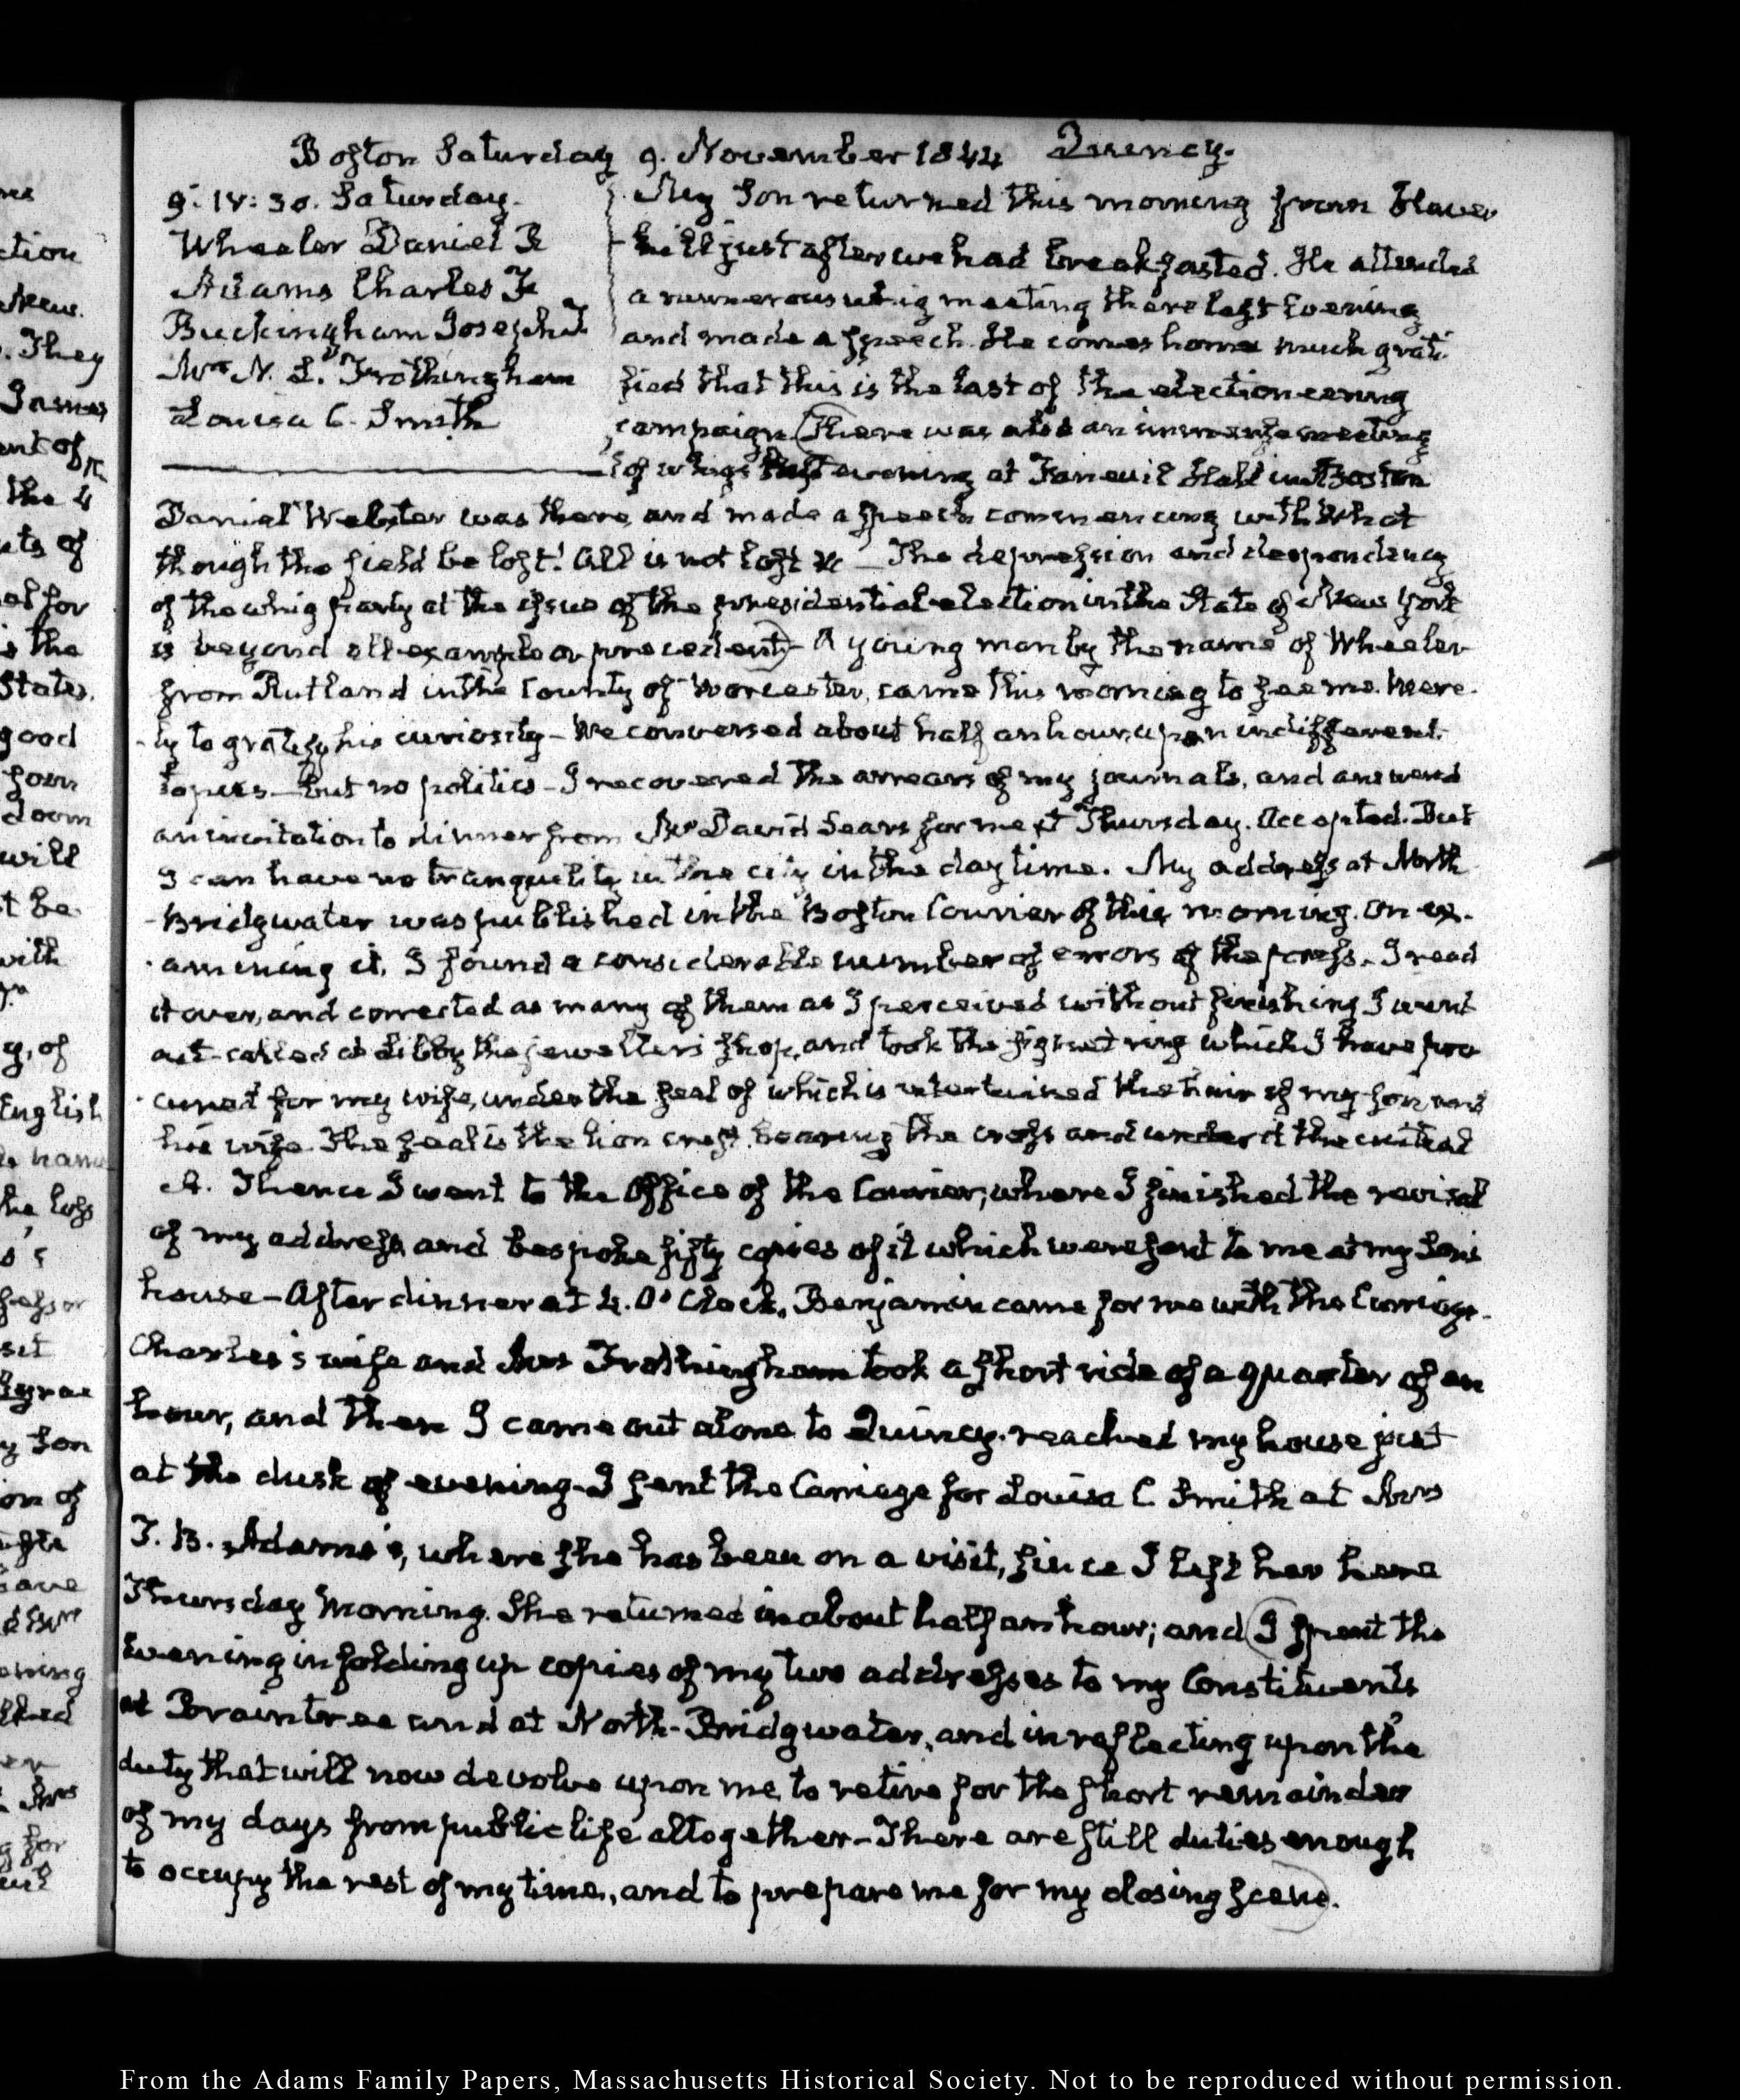 Boston Saturday 9. November 1844 Quincy.
9. IV: 30. Saturday.
Wheeler Daniel F
Adams Charles F
Buckingham Joseph T
Mrs N. L. Frothingham
Louisa C. Smith
My Son returned this morning from Haver
hill just after we had breakfasted. He attended
a numerous whig meeting there last Evening
and made a speech. He comes home much grati-
fied that this is the last of the electioneering
campaign (There was also an immense meeting
of whigs last evening at Faneuil Hall in Boston
Daniel Webster was there and made a speech commencing with What
though the field be lost! All is not lost &c — The depression and despondency
of the whig party at the issue of the presidential election in the State of New York
is beyond all example or precedent)— A young man by the name of Wheeler
from Rutland in the County of Worcester, came this morning to see me. mere-
-ly to gratify his curiosity — We conversed about half an hour, upon indifferent
topics — but no politics — I recovered the arrears of my journals, and answered
an invitation to dinner from Mr David Sears for next Thursday. Accepted. But
I can have no tranquility in the city in the day time. My address at North
-Bridgwater was published in the Boston Courier of this morning. On ex-
-amining it, I found a considerable number of errors of the press. I read
it over, and corrected as many of them as I perceived without finishing I went
out called at Libby the jeweller's shop, and took the signet ring which I have pro
-cured for my wife, under the seal of which is intertwined the hair of my son and
his wife. The seal is the lion crest bearing the cross and under it the initial
A. Thence I went to the Office of the Courier, where I finished the revisal
of my address, and bespoke fifty copies of it which were sent to me at my Son's
house — After dinner at 4. O'Clock, Benjamin came for me with the Carriage.
Charles's wife and Mrs Frothingham took a short ride of a quarter of an
hour, and then I came out alone to Quincy. reached my house just
at the dusk of evening — I sent the Carriage for Louisa C. Smith at Mrs
T. B. Adams's, where she has been on a visit, since I left her here
Thursday Morning. She returned in about half an hour; and (I spent the
Evening in folding up copies of my two addresses to my Constituents
at Braintree and at North-Bridgwater, and in reflecting upon the
duty that will now devolve upon me, to retire for the short remainder
of my days from public life altogether — There are still duties enough
to occupy the rest of my time, and to prepare me for my closing scene).
From the Adams Family Papers, Massachusetts Historical Society. Not to be reproduced without permission.